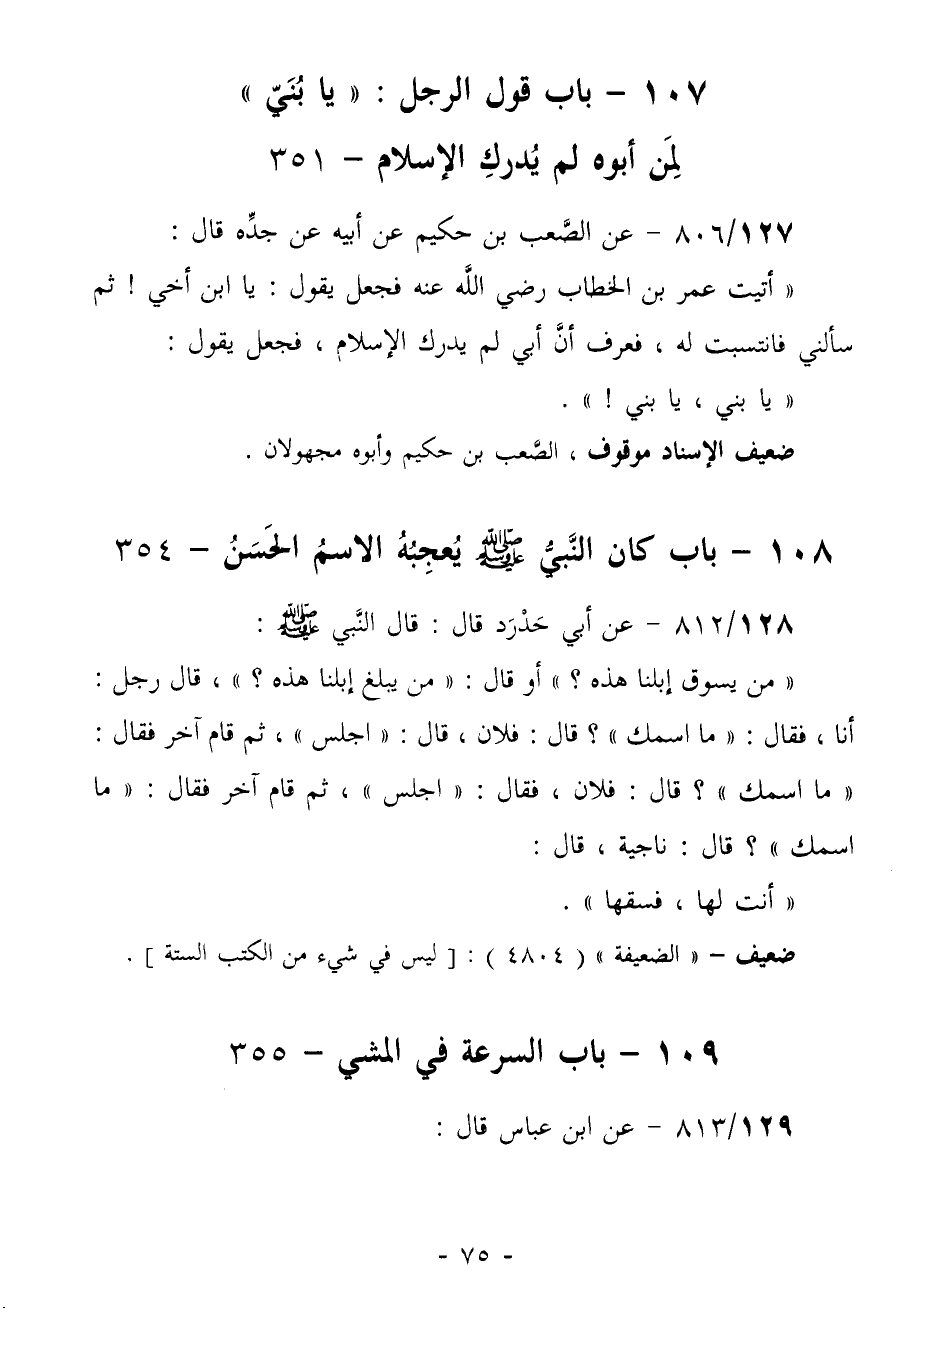 ١٠٧ - باب قول الرجل : « يا بُنَيّ »
لِمَن أبوه لم يُدركِ الإسلام - ٣٥١
٨٠٦/١٢٧ - عن الصَّعب بن حكيم عن أبيه عن جدِّه قال :
« أتيت عمر بن الخطاب رضي اللَّه عنه فجعل يقول : يا ابن أخي ! ثم
سألني فانتسبت له ، فعرف أنَّ أبي لم يدرك الإسلام ، فجعل يقول :
« يا بني ، يا بني ! » .
ضعيف الإسناد موقوف ، الصَّعب بن حكيم وأبوه مجهولان .
١٠٨ - باب كان النَّبيُّ ﷺ يُعجِبُهُ الاسمُ الحَسَنُ - ٣٥٤
٨١٢/١٢٨ - عن أبي حَدْرَد قال : قال النَّبي ﷺ :
« من يسوق إبلنا هذه ؟ » أو قال : « من يبلغ إبلنا هذه ؟ » ، قال رجل :
أنا ، فقال : « ما اسمك » ؟ قال : فلان ، قال : « اجلس » ، ثم قام آخر فقال :
« ما اسمك » ؟ قال : فلان ، فقال : « اجلس » ، ثم قام آخر فقال : « ما
اسمك » ؟ قال : ناجية ، قال :
« أنت لها ، فسقها » .
ضعيف - « الضعيفة » ( ٤٨٠٤ ) : [ ليس في شيء من الكتب الستة ] .
١٠٩ - باب السرعة في المشي - ٣٥٥
٨١٣/١٢٩ - عن ابن عباس قال :
- ٧٥ -